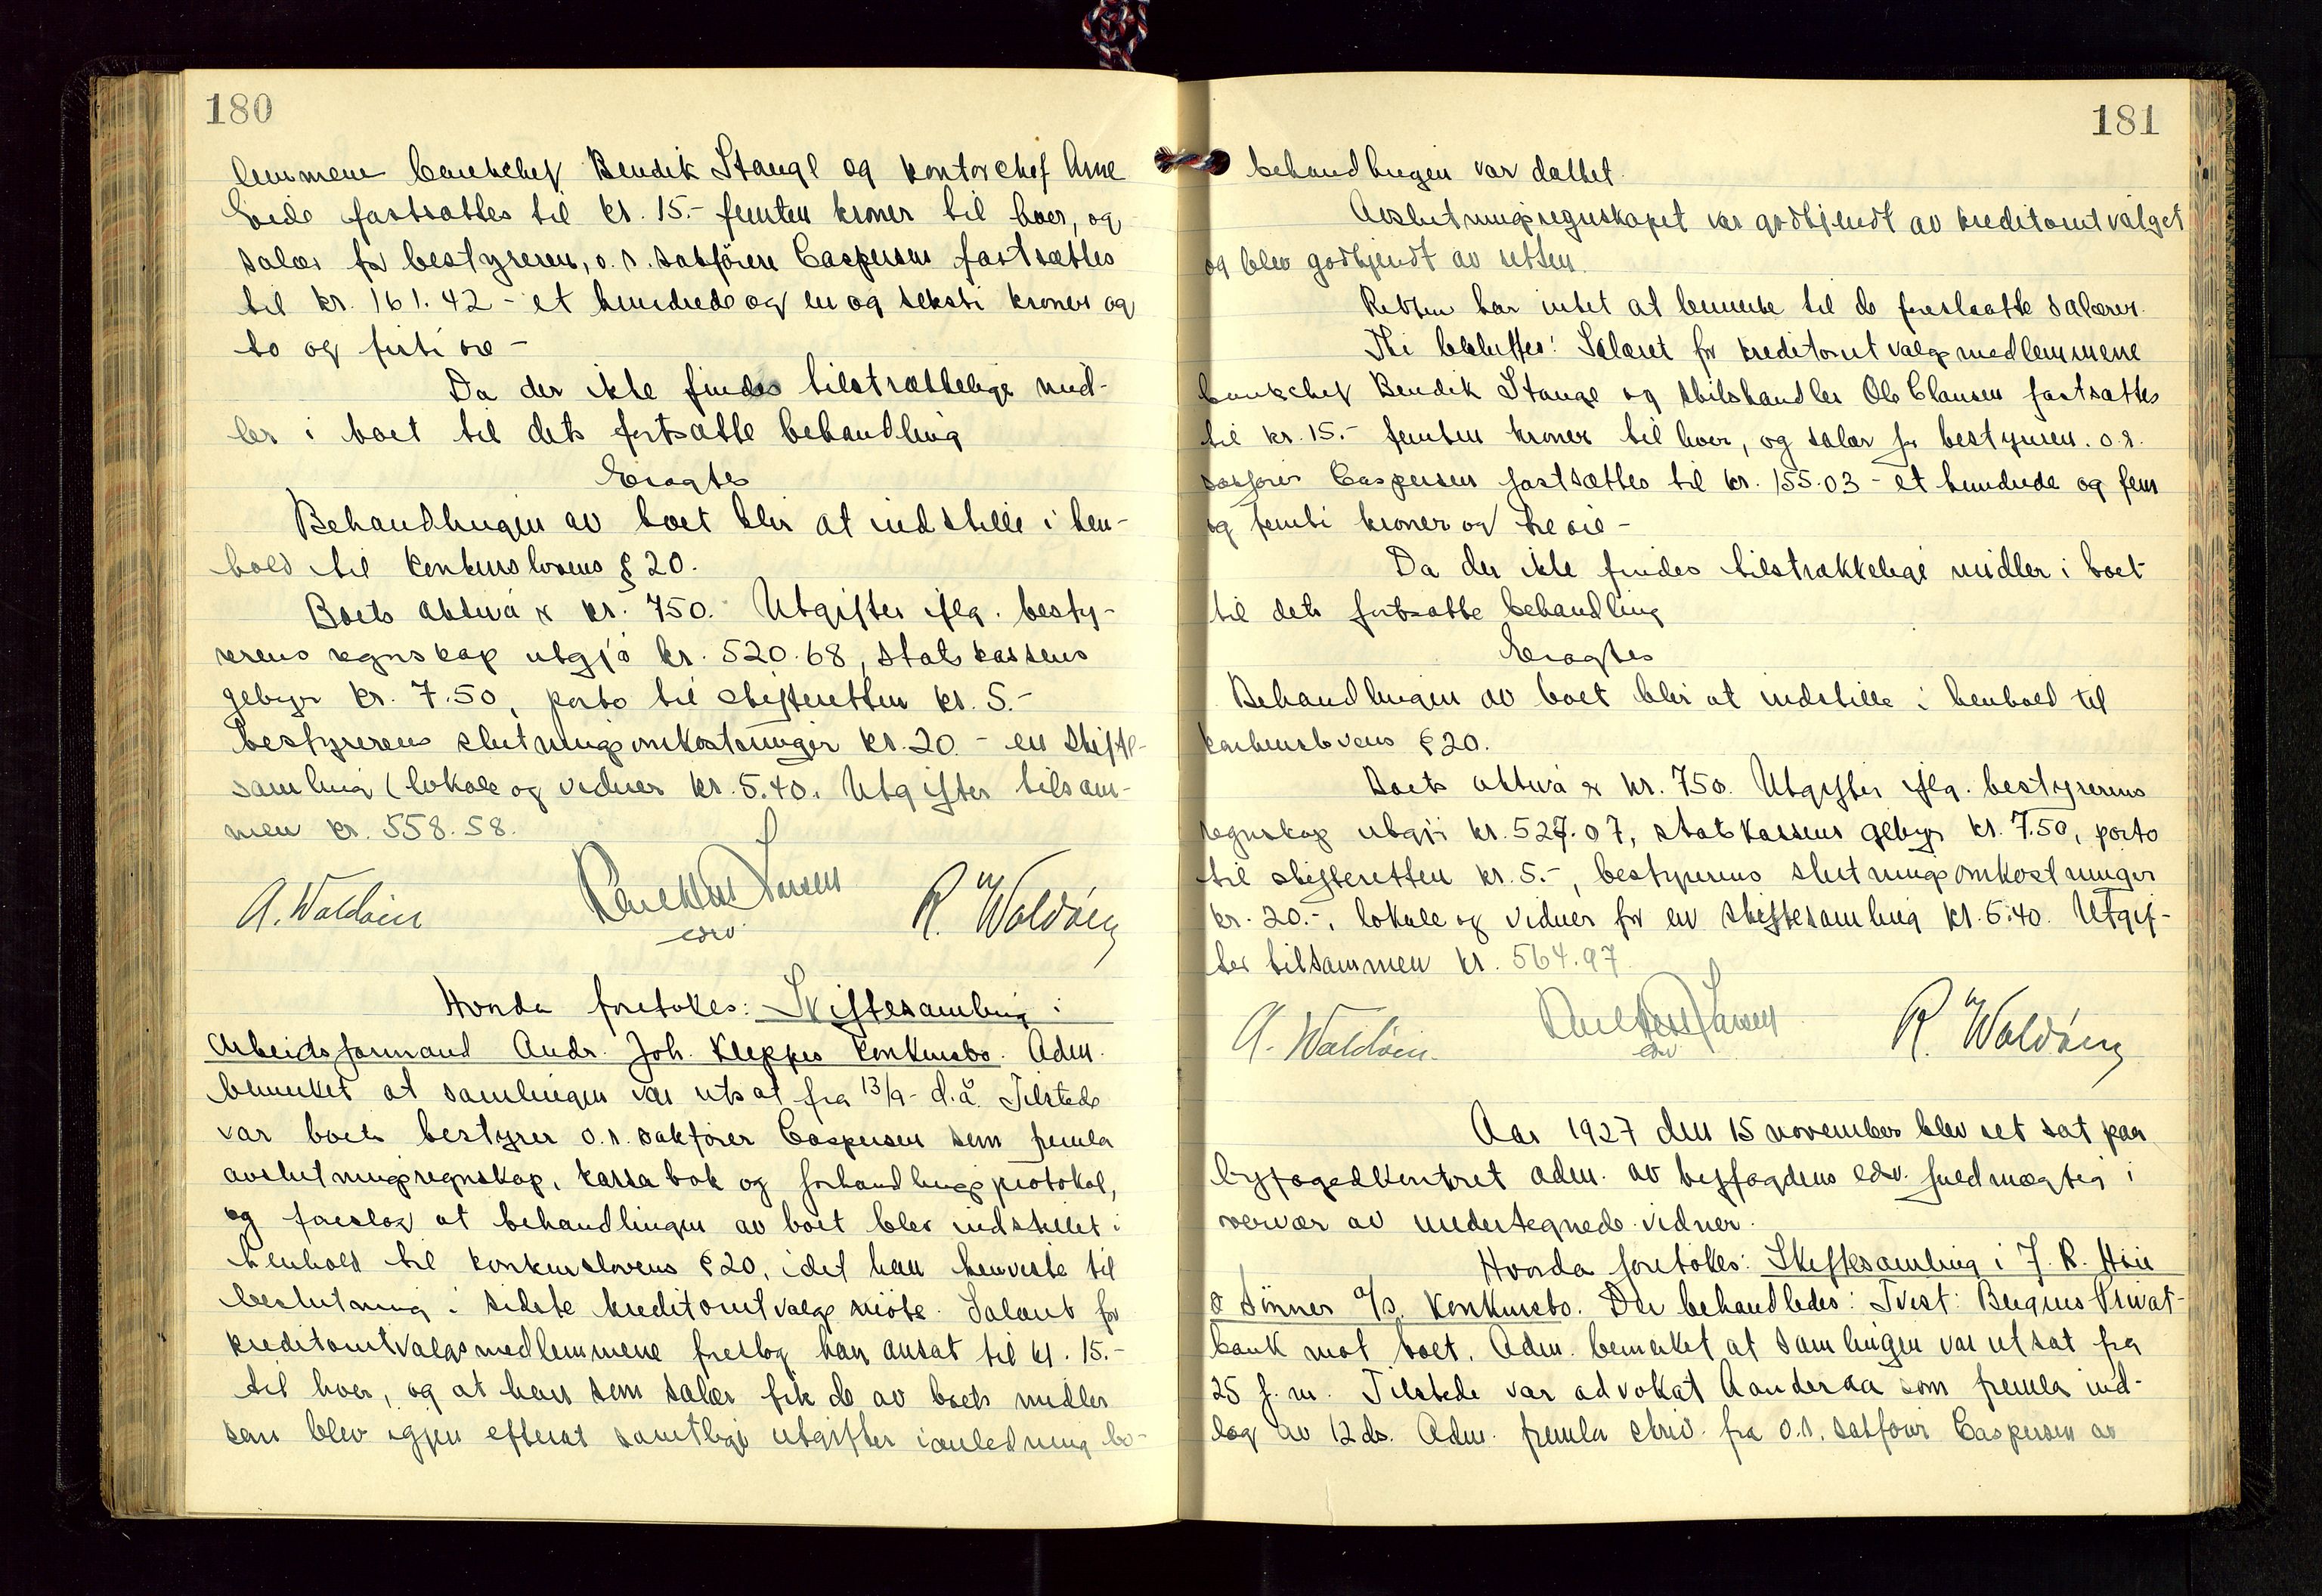 180
lemmene banksjef Bendik Stangl og kontorchef Arne
Eide fastsættes til kr. 15.- femten kroner til hver, og
salær for bestyreren, o.r.sakfører Caspersen fastsættes
til kr. 161.42 - et hundrede og en og seksti kroner og
to og firti øre -
Da der ikke findes tilstrækkelige mid-
ler i boet til dets fortsatte behandling
Eragtes
Behandlingen av boet blir at indstille i hen-
hold til konkurslovens § 20.
Boets aktiva er kr. 750. Utgifter iflg. besty-
rerens regnskap utgjø kr. 520.68, statskassens
gebyr kr. 7.50, porto til skifteretten kr. 5.-
bestyrerens slutningsomkostninger kr. 20.- en skifte-
samling (lokale og vidner kr. 5.40. Utgifter tilsam-
men kr. 558.58.
A. Waldein R. Waldóing
esv.
Hvorda foretokes: Skiftesamling i
Arbeidsformand Andr. Joh. Kleppes konkursbo. Adm.
bemerket at samlingen var utsat fra 13/9- d.å. Tilstede
var boets bestyrer o.r.sakfører Caspersen som fremla
avslutningsregnskap, kassabok og forhandlingsprotokol,
og foreslog at behandlingen av boet blev indstillet i
henhold til konkurslovens § 20, idet han henviste til
beslutning i sidste kreditorutvalgs møte. Salæret for
kreditorutvalgsmedlemmene foreslog han ansat til kr. 15.-
til hver, og at han som salær fik de av boets midler
som blev igjen efterat samtlige utgifter i anledning bo-
181
behandlingen var dækket.
Avslutningsregnskapet var godkjendt av kreditorutvalget
og blev godkjendt av retten.
Retten har intet at bemerke til de foreslaatte salærer.
Thi besluttes: Salæret for kreditorutvalgsmedlemmene
bankchef Bendik Stangl og skibshandler Ole Clausen fastsættes
til kr. 15.- femten kroner til hver, og salær for bestyreren. o.r.
sakfører Caspersen fastsættes til kr. 155.03 - et hundrede og fem
og femti kroner og tre øre -
Da der ikke findes tilstrækkelige midler i boet
til dets fortsatte behandling
Eragtes
Behandlingen av boet blir at indstille i henhold til
konkurslovens § 20.
Boets aktiva er kr. 750. Utgifter iflg. bestyrerens
regnskap utgjø kr. 527.07, statskassens gebyr kr. 7.50, porto
til skifteretten kr. 5.-, bestyrerens slutningsomkostninger
kr. 20.-, lokale og vidner for en skiftesamling kr. 5.40. Utgif-
ter tilsammen kr. 564.97.
A. Waldein R. Waldóing
esv
Aar 1927 den 15 november blev ret sat paa
byfogedkontoret adm. av byfogdens edsv. fuldmægtig i
overvær av undertegnede vidner.
Hvorda foretokes: Skiftesamling i J. R. Høie
& Sønner A/S. konkursbo. Der behandledes: Tvist: Bergens Privat-
bank mot boet. Adm. bemerket at samlingen var utsat fra
25 f. m. Tilstede var advokat Aanderaa som fremla ind-
læg av 12 ds. Adm. fremla skriv. fra o.r. sakfører Caspersen av